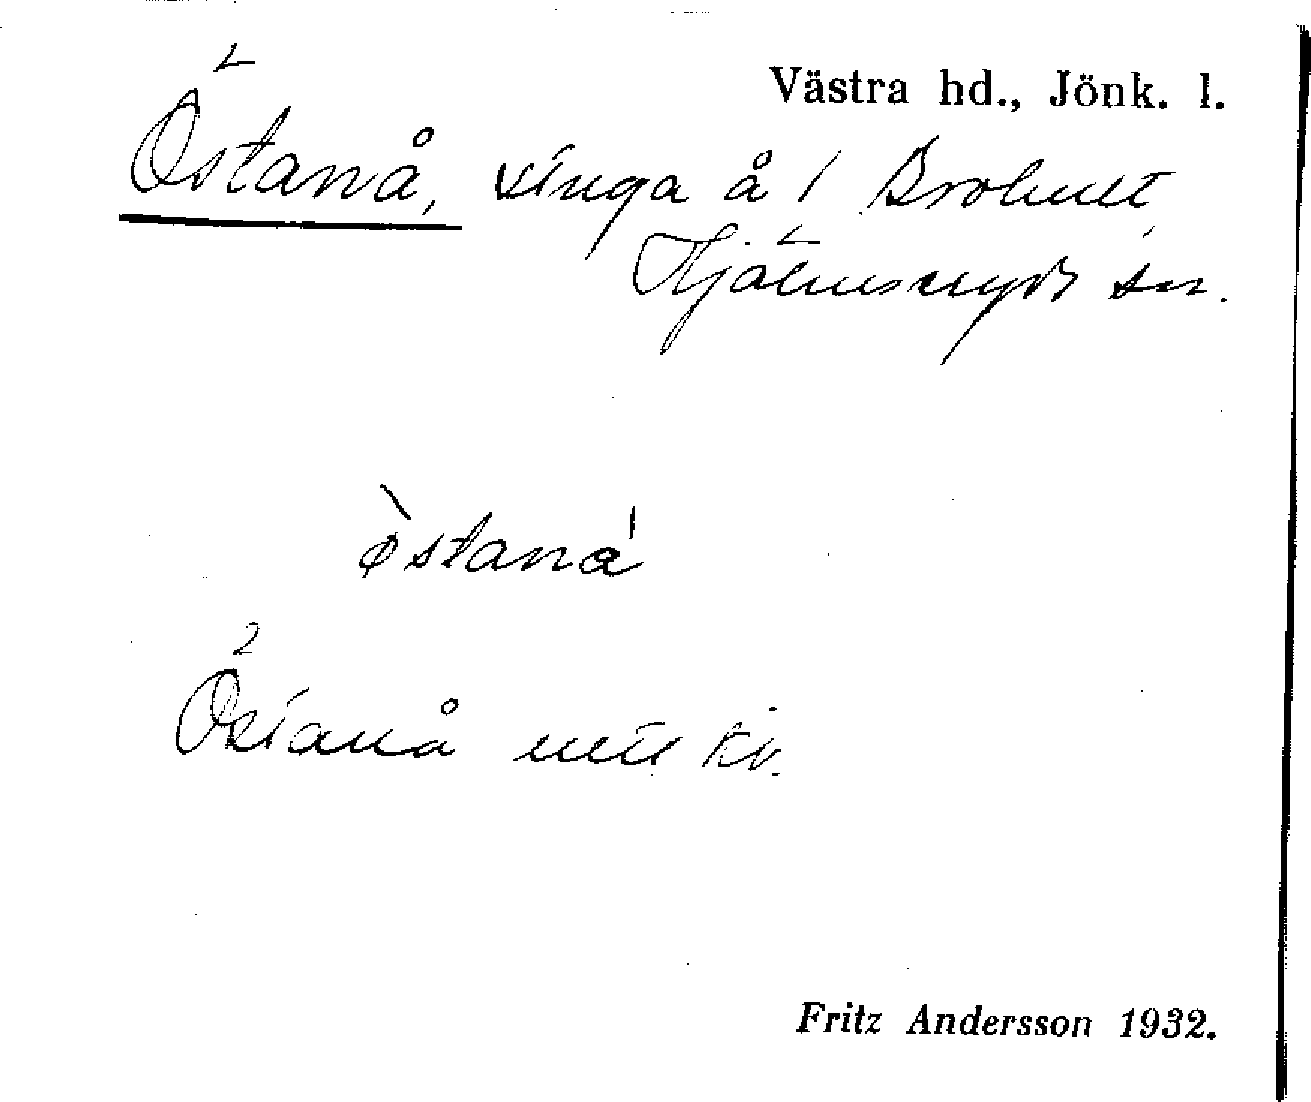 Västra hd., Jönk. l.
Östanå, ringa å i Brohult
Hjälmseryds sn.
ø̀staná
Östanå mtl kv.
Fritz Andersson 1932.